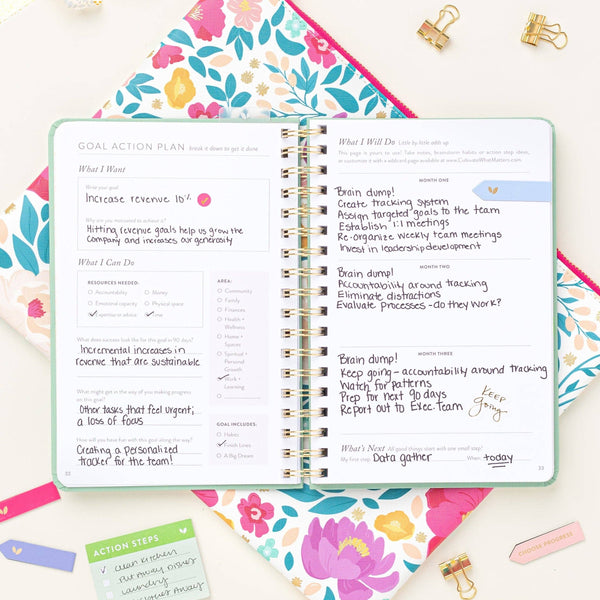 GOAL ACTION PLAN break it down to get it done
What I Want
Write your goal.
Increase revenue 10%
Why are you motivated to achieve it?
Hitting revenue goals help us grow the
company and increases our generosity
What I Can Do
RESOURCES NEEDED:
Accountability
Money
Emotional capacity
Physical space
expertise or advice
time
AREA:
Community
Family
Finances
Health +
Wellness
Home +
Spaces
Spiritual +
Personal
Growth
Work +
Learning
What does success look like for this goal in 90 days?
Incremental increases in
revenue that are sustainable
What might get in the way of you making progress
on this goal?
Other tasks that feel urgent;
a loss of focus
How will you have fun with this goal along the way?
Creating a personalized
tracker for the team!
GOAL INCLUDES:
Habits
Finish Lines
A Big Dream
32
What I Will Do Little by little adds up
This page is yours to use! Take notes, brainstorm habits or action step ideas,
or customize it with a wildcard page available at www.CultivateWhatMatters.com.
MONTH ONE
Brain dump!
Create tracking system
Assign targeted goals to the team
Establish 1:1 meetings
Re-organize weekly team meetings
Invest in leadership development
MONTH TWO
Brain dump!
Accountability around tracking
Eliminate distractions
Evaluate processes - do they work?
MONTH THREE
Brain dump!
Keep going - accountability around tracking
Watch for patterns
Prep for next 90 days
Report out to Exec. Team
KEEP
Going
What's Next All good things start with one small step!
My first step: Data gather When: today
33
ACTION STEPS
CLEAN KITCHEN
PUT AWAY DISHES
LAUNDRY
CLOTHES AWAY
CHOOSE PROGRESS